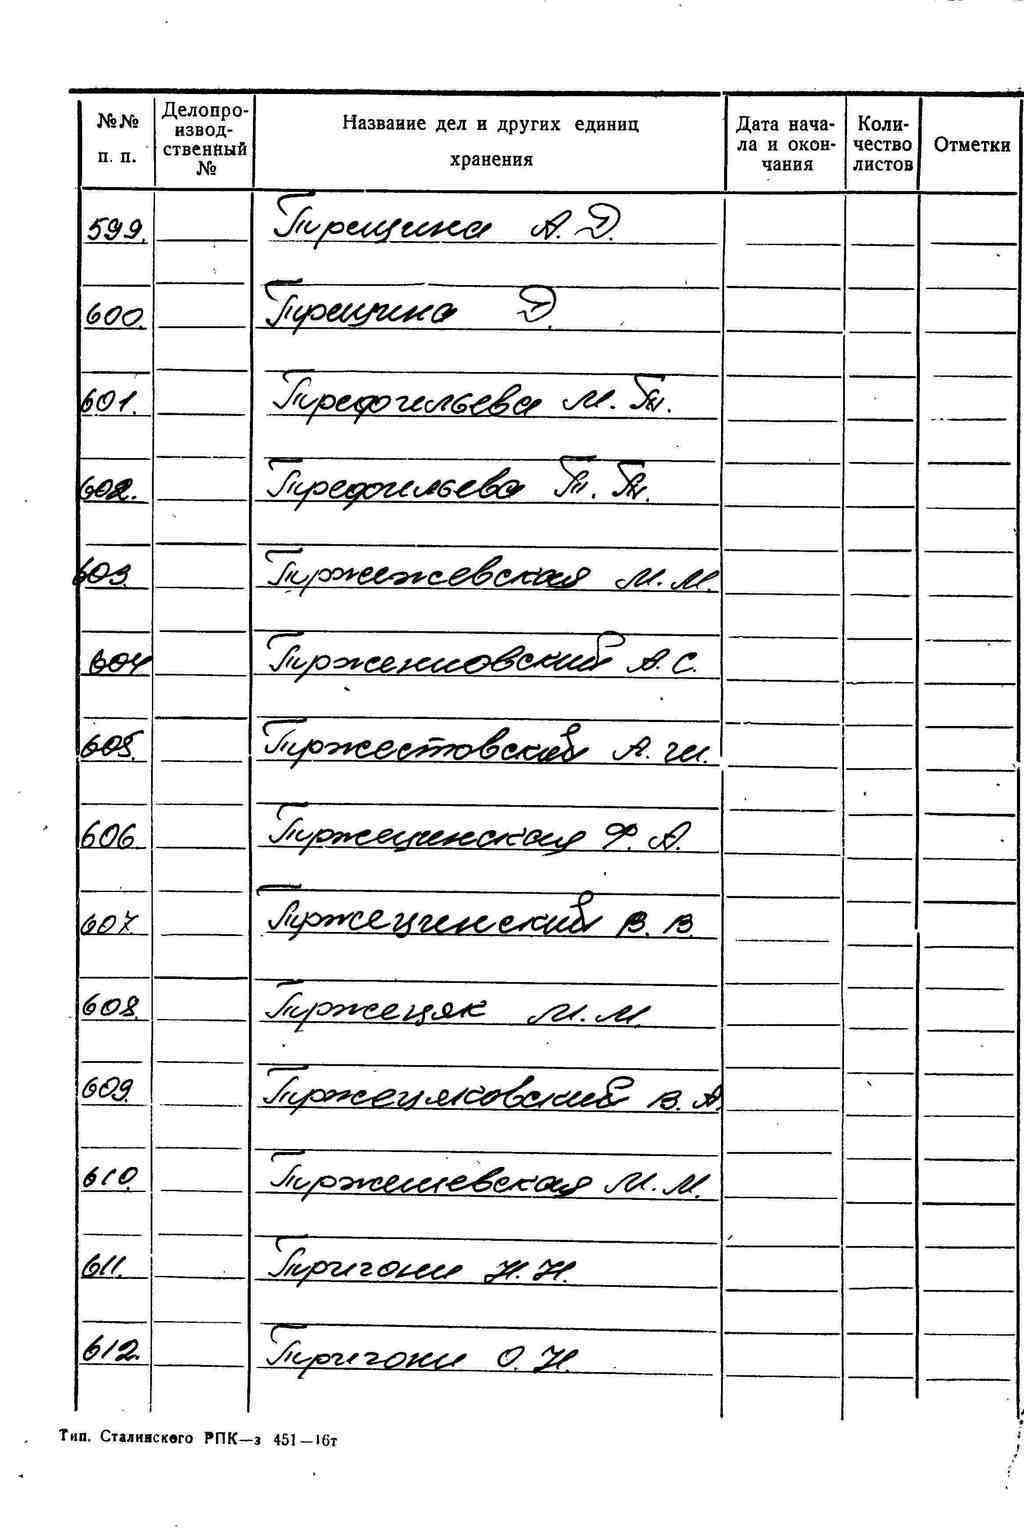 №№ п. п. Делопро-изводственный № Название дел и других единиц хранения Дата начала и окончания Количество листов Отметки
599. Прещина А. Д.
600. Прещина Д.
601. Префильева М. П.
602. Префильева П. П.
603. Пржежевская М. М.
604 Прженловский А. С.
605. Пржестовский А. И.
606. Пржецинская Ф. А.
607. Пржецинский В. В.
608. Пржецяк М. М.
609. Пржецяковский В. А.
610. Пржешевская М. М.
611. Пригони Н. Н.
612. Пригони О. Н.
Тип. Сталинского РПК—з 451—16т